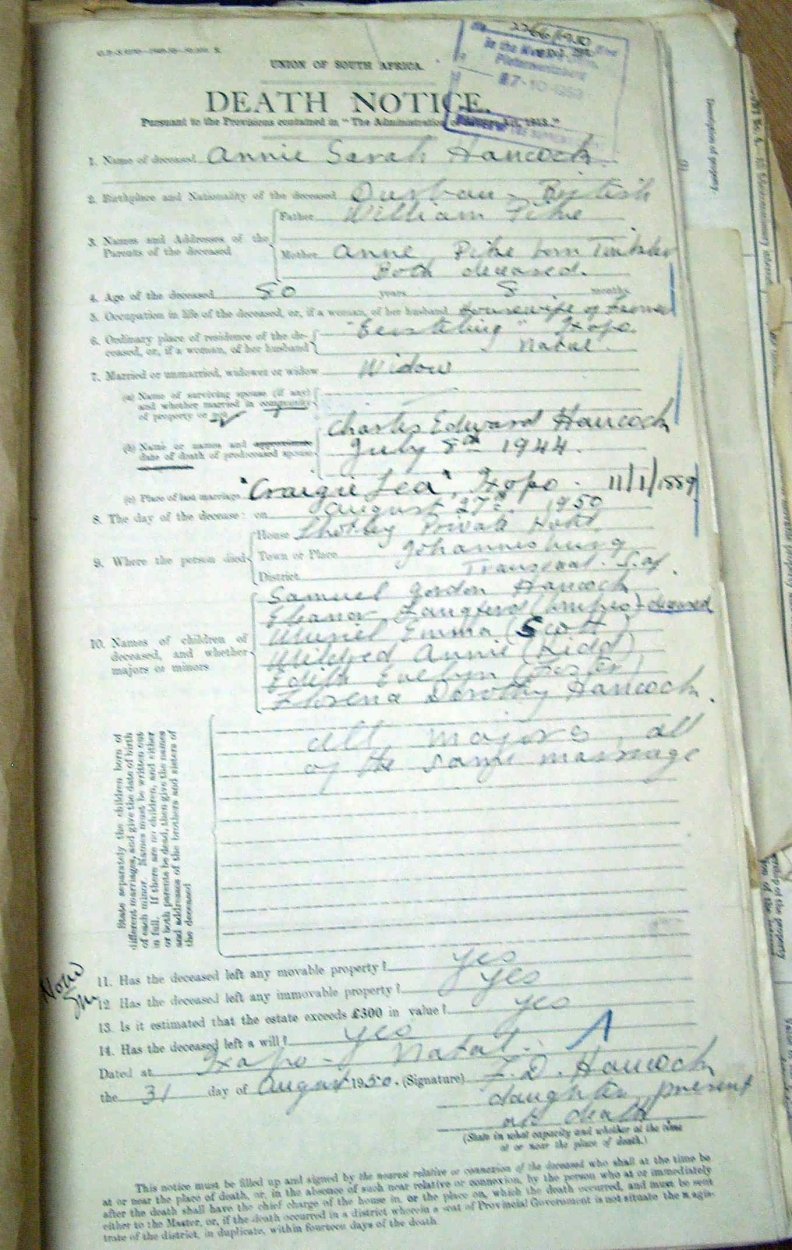 UNION OF SOUTH AFRICA.
DEATH NOTICE.
Pursuant to the Provisions contained in "The Administration of Estates Act, 1913."
1. Name of deceased Annie Sarah Hancock
2. Birthplace and Nationality of the deceased Durban - British
3. Names and Addresses of the Parents of the deceased
Father William Pike
Mother Anne Pike born
Both deceased.
4. Age of the deceased 80 years 8 months
5. Occupation in life of the deceased, or, if a woman, of her husband Housewife of Farmer
6. Ordinary place of residence of the deceased, or, if a woman, of her husband
Ixopo.
Natal.
7. Married or unmarried, widower or widow Widow
(a) Name of surviving spouse (if any) and whether married in community of property or not
(b) Name or names and approximate date of death of predeceased spouse
Charles Edward Hancock
July 8th 1944.
(c) Place of last marriage "Craigie Lea", Ixopo. 11/1/1889
8. The day of the decease: on August 27th. 1950
9. Where the person died
House Private Hotel
Town or Place Johannesburg
District Transvaal. S.A.
10. Names of children of deceased, and whether majors or minors
Samuel Gordon Hancock
Eleanor Langford deceased
Muriel Emma (Scott)
Mildred Annie (Kidd)
Edith Evelyn
Florena Dorothy Hancock.
State separately the children born of
different marriages, and give the date of birth
of each minor. Names must be written out
in full. If there are no children, and either
or both parents be dead, then give the names
and addresses of the brothers and sisters of
the deceased
all majors, all
of the same marriage
11. Has the deceased left any movable property? yes
12. Has the deceased left any immovable property? yes
13. Is it estimated that the estate exceeds £300 in value? yes
14. Has the deceased left a will? yes
Dated at Ixopo - Natal.
the 31 day of August 1950. (Signature) F. D. Hancock
daughter present
at death.
(State in what capacity and whether at the time
at or near the place of death.)
This notice must be filled up and signed by the nearest relative or connexion of the deceased who shall at the time be
at or near the place of death, or, in the absence of such near relative or connexion, by the person who at or immediately
after the death shall have the chief charge of the house in, or the place on, which the death occurred, and must be sent
either to the Master, or, if the death occurred in a district wherein a seat of Provincial Government is not situate the magis-
trate of the district, in duplicate, within fourteen days of the death
Description of property